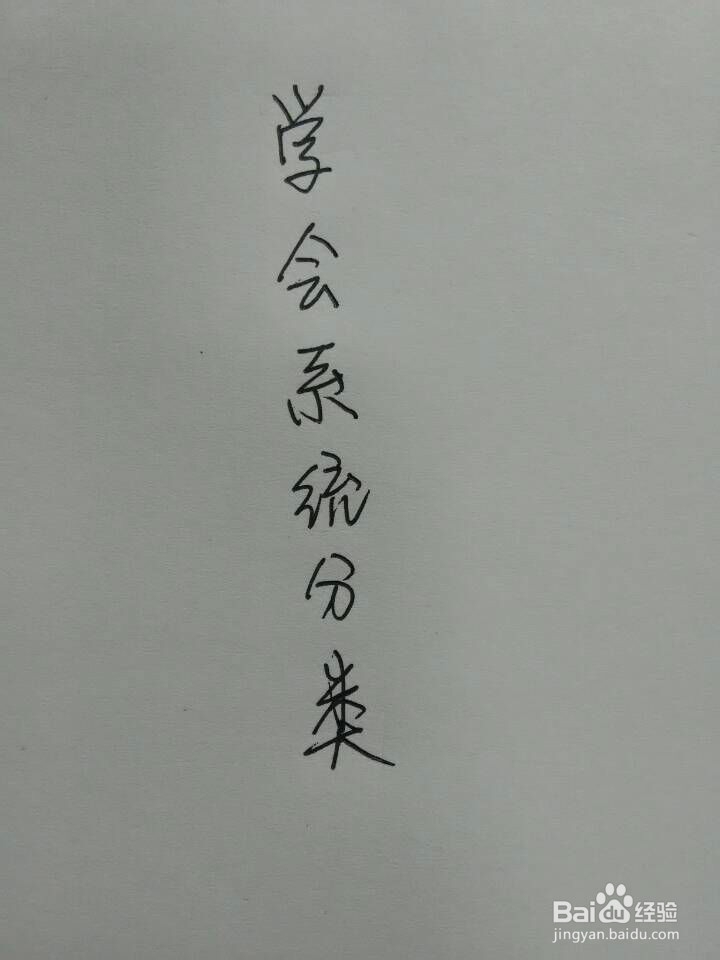 学会系统分类
Baidu经验
jingyan.baidu.com